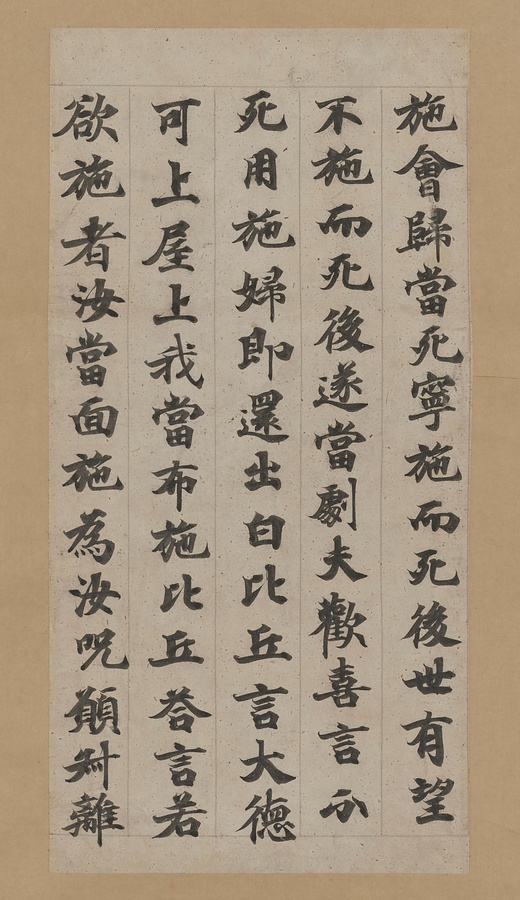 施會歸當死寧施而死後世有望
不施而死後遂當劇夫歡喜言分
死用施婦即還出白比丘言大德
可上屋上我當布施比丘荅言若
欲施者汝當面施為汝呪願叔離